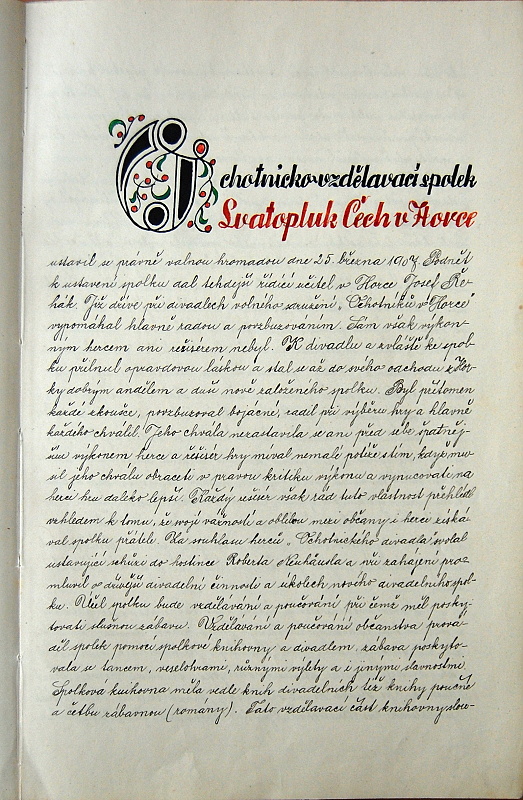 Ochotnicko-vzdělavací spolek
Svatopluk Čech v Horce
ustavil se právně valnou hromadou dne 25. března 1907. Podnět
k ustavení spolku dal tehdejší řídící učitel v Horce Josef Ře-
hák. Již dříve při divadlech volného sdružení „Ochotníků v Horce"
vypomáhal hlavně radou a povzbuzovaním. Sám však výkon-
ným hercem ani režisérem nebyl. K divadlu a zvláště ke spol-
ku přilnul opravdovou láskou a stal se až do svého odchodu z Hor-
ky dobrým andělem a duší nově založeného spolku. Byl přítomen
každé zkoušce, povzbuzoval bojácné, radil při výběru hry a hlavně
každého chválil. Jeho chvála nezastavila se ani před sebe špatněj-
ším výkonem herce a režisér hry míval nemalé potíže s tím, když mu-
sil jeho chválu obraceti v pravou kritiku výkonu a vynucovati na
herci hru daleko lepší. Každý režisér však rád tuto vlastnost přehlédl
vzhledem k tomu, že svojí vážností a oblibou mezi občany i herci získá-
val spolku přátele. Za souhlasu herců „Ochotnického divadla" svolal
ustavující schůzi do hostince Roberta Neuhäusla a při zahájení pro-
mluvil o dřívější divadelní činnosti a úkolech nového divadelního spol-
ku. Účel spolku bude vzdělávání a poučování při čemž měl posky-
tovati slušnou zábavu. Vzdělávání a poučování občanstva prová-
děl spolek pomocí spolkové knihovny a divadlem, zábava poskyto-
vala se tancem, veselohrami, různými výlety a i jinými slavnostmi.
Spolková knihovna měla vedle knih divadelních též knihy poučné
a četbu zábavnou (romány). Tato vzdělavací část knihovny slou-